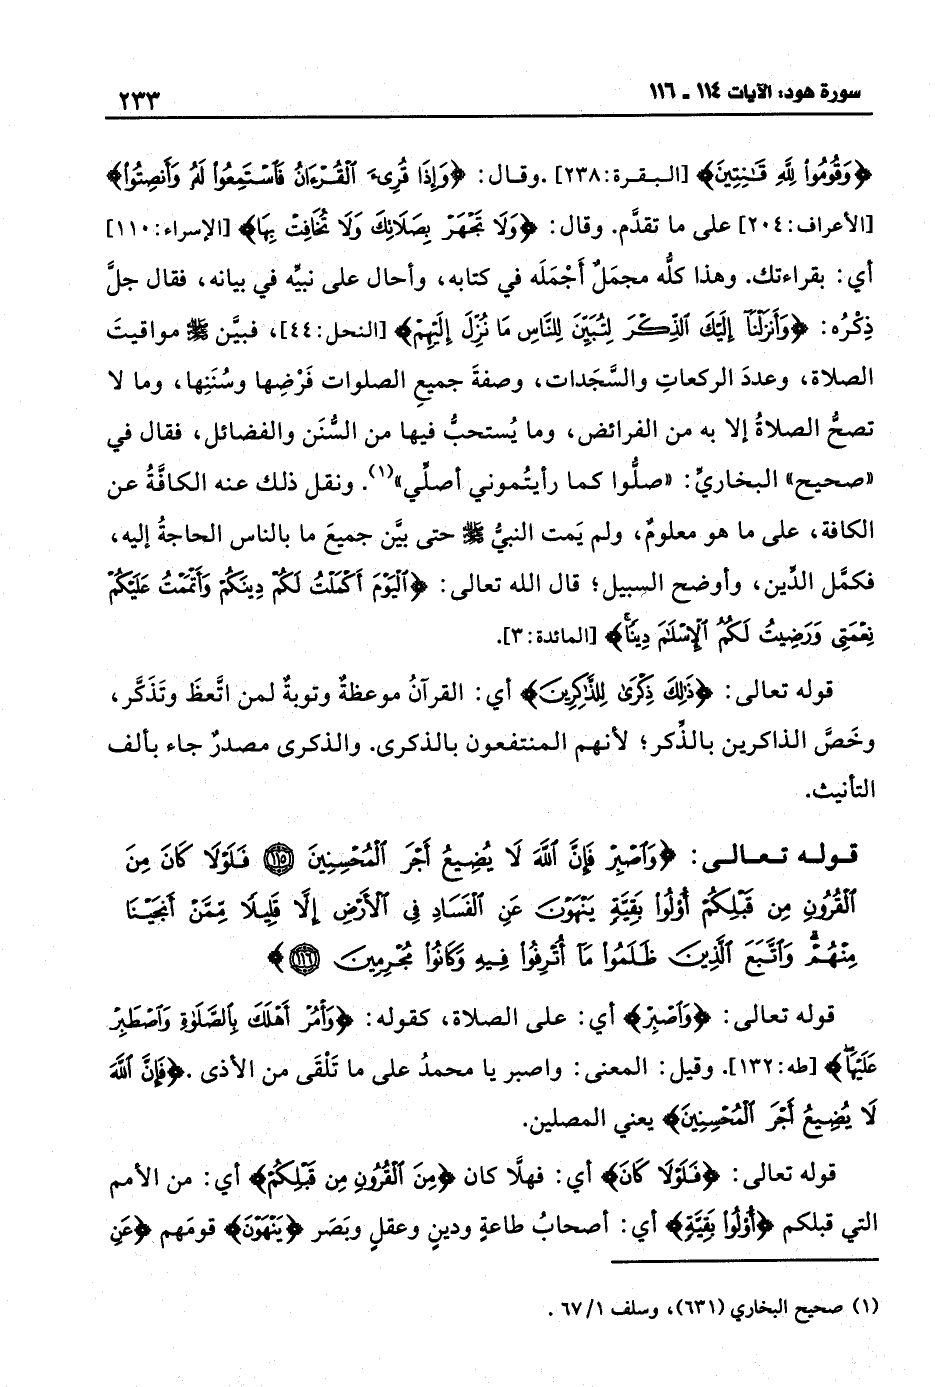 سورة هود: الآيات ١١٤ - ١١٦
٢٣٣
﴿وَقُومُوا۟ لِلَّهِ قَـٰنِتِينَ﴾ [البـقـرة:٢٣٨]. وقـال: ﴿وَإِذَا قُرِىءَ ٱلْقُـرْءَانُ فَٱسْـتَمِعُوا۟ لَهُۥ وَأَنصِتُوا۟﴾
[الأعراف:٢٠٤] على ما تقدَّم. وقال: ﴿وَلَا تَجْهَرْ بِصَلَاتِكَ وَلَا تُخَافِتْ بِهَا﴾ [الإسراء:١١٠]
أي: بقراءتك. وهذا كلُّه مجملٌ أَجْمَلَه في كتابه، وأحال على نبيِّه في بيانه، فقال جلَّ
ذِكْرُه: ﴿وَأَنزَلْنَآ إِلَيْكَ ٱلذِّكْرَ لِتُبَيِّنَ لِلنَّاسِ مَا نُزِّلَ إِلَيْهِمْ﴾ [النحل:٤٤]، فبيَّن ﷺ مواقيتَ
الصلاة، وعددَ الركعاتِ والسَّجَدات، وصفةَ جميعِ الصلوات فَرْضِها وسُنَنِها، وما لا
تصحُّ الصلاةُ إلا به من الفرائض، وما يُستحبُّ فيها من السُّنَن والفضائل، فقال في
«صحيح» البخاريِّ: «صلُّوا كما رأيتُموني أصلِّي»(١). ونقل ذلك عنه الكافَّةُ عن
الكافة، على ما هو معلومٌ، ولم يَمت النبيُّ ﷺ حتى بيَّن جميعَ ما بالناس الحاجةُ إليه،
فكمَّل الدِّين، وأوضح السبيل؛ قال الله تعالى: ﴿ٱلْيَوْمَ أَكْمَلْتُ لَكُمْ دِينَكُمْ وَأَتْمَمْتُ عَلَيْكُمْ
نِعْمَتِى وَرَضِيتُ لَكُمُ ٱلْإِسْلَـٰمَ دِينًا﴾ [المائدة:٣].
قوله تعالى: ﴿ذَٰلِكَ ذِكْرَىٰ لِلذَّٰكِرِينَ﴾ أي: القرآنُ موعظةٌ وتوبةٌ لمن اتَّعظَ وتَذَكَّر،
وخَصَّ الذاكرين بالذِّكر؛ لأنهم المنتفعون بالذكرى. والذكرى مصدرٌ جاء بألف
التأنيث.
قـولـه تـعـالـى: ﴿وَٱصْبِرْ فَإِنَّ ٱللَّهَ لَا يُضِيعُ أَجْرَ ٱلْمُحْسِنِينَ ۝١١٥ فَلَوْلَا كَانَ مِنَ
ٱلْقُرُونِ مِن قَبْلِكُمْ أُو۟لُوا۟ بَقِيَّةٍ يَنْهَوْنَ عَنِ ٱلْفَسَادِ فِى ٱلْأَرْضِ إِلَّا قَلِيلًا مِّمَّنْ أَنجَيْنَا
مِنْهُمْ ۗ وَٱتَّبَعَ ٱلَّذِينَ ظَلَمُوا۟ مَآ أُتْرِفُوا۟ فِيهِ وَكَانُوا۟ مُجْرِمِينَ ۝١١٦﴾
قوله تعالى: ﴿وَٱصْبِرْ﴾ أي: على الصلاة، كقوله: ﴿وَأْمُرْ أَهْلَكَ بِٱلصَّلَوٰةِ وَٱصْطَبِرْ
عَلَيْهَا﴾ [طه:١٣٢]. وقيل: المعنى: واصبر يا محمدُ على ما تَلْقَى من الأذى. ﴿فَإِنَّ ٱللَّهَ
لَا يُضِيعُ أَجْرَ ٱلْمُحْسِنِينَ﴾ يعني المصلين.
قوله تعالى: ﴿فَلَوْلَا كَانَ﴾ أي: فهلَّا كان ﴿مِنَ ٱلْقُرُونِ مِن قَبْلِكُمْ﴾ أي: من الأمم
التي قبلكم ﴿أُو۟لُوا۟ بَقِيَّةٍ﴾ أي: أصحابُ طاعةٍ ودينٍ وعقلٍ وبَصَر ﴿يَنْهَوْنَ﴾ قومَهم ﴿عَنِ
(١) صحيح البخاري (٦٣١)، وسلف ٦٧/١ .